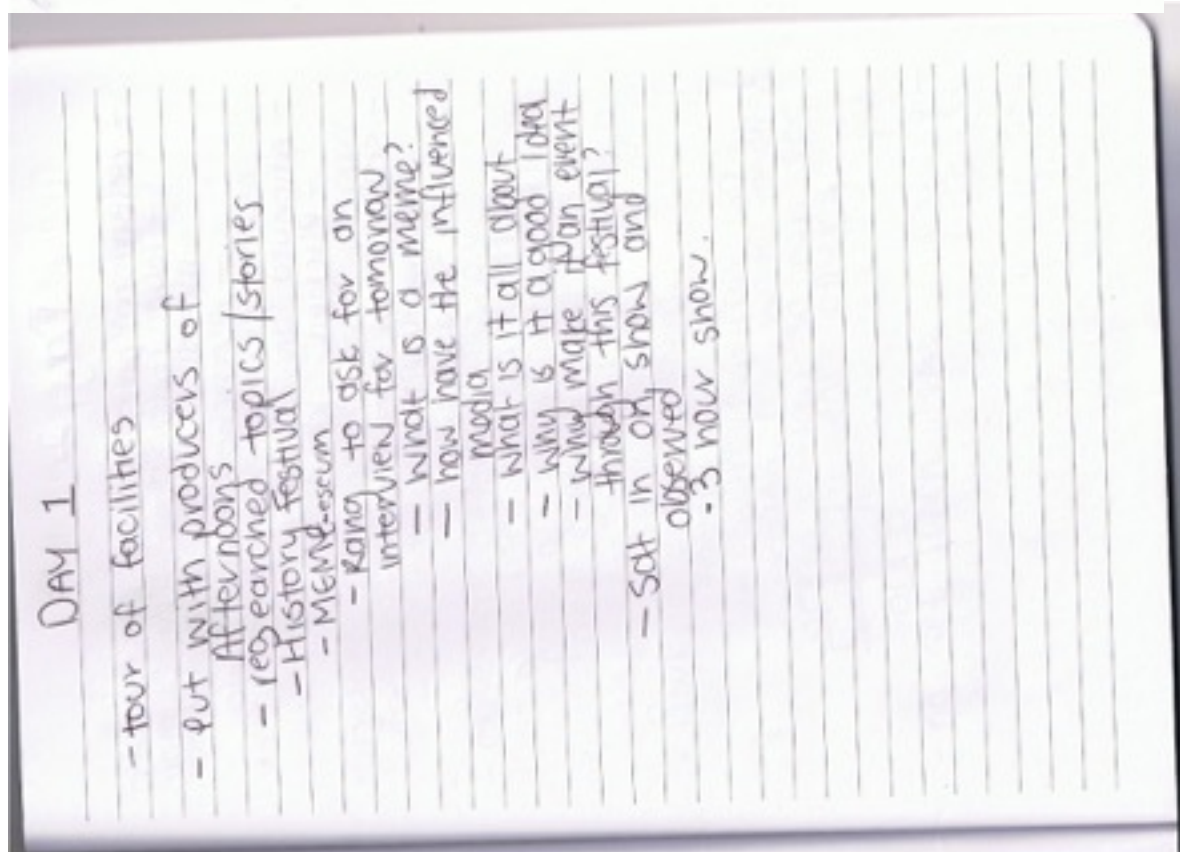 DAY 1
- tour of facilities
- put with producers of
Afternoons
- researched topics/stories
- History Festival
- MEME-eseum
- Rang to ask for an
interview for tomorrow
- what is a meme?
- how have the influenced
media
- what is it all about
- why is it a good idea
- why make it an event
through this festival?
- Satt in on show and
observed
- 3 hour show.